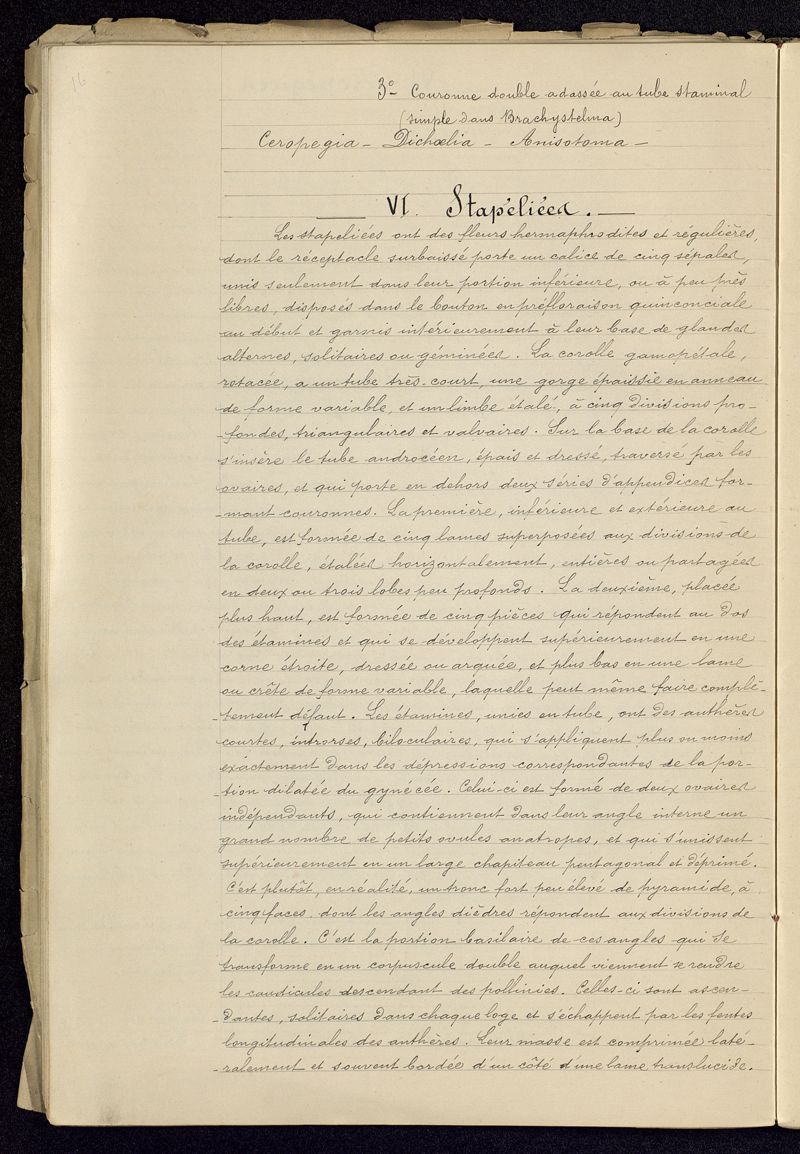 16
3º Couronne double adossée au tube staminal
(simple dans Brachystelma)
Ceropegia – Dichœlia – Anisotoma –
VI. Stapéliées. –
Les stapeliées ont des fleurs hermaphrodites et régulières,
dont le réceptacle surbaissé porte un calice de cinq sépales,
unis seulement dans leur portion inférieure, ou à peu près
libres, disposés dans le bouton en préfloraison quinconciale
au début et garnis intérieurement à leur base de glandes
alternes, solitaires ou géminées. La corolle gamopétale,
rotacée, a un tube très-court, une gorge épaissie en anneau
de forme variable, et un limbe étalé, à cinq divisions pro-
-fondes, triangulaires et valvaires. Sur la base de la corolle
s'insère le tube androcéen, épais et dressé, traversé par les
ovaires, et qui porte en dehors deux séries d'appendices for-
-mant couronnes. La première, inférieure et extérieure au
tube, est formée de cinq lames superposées aux divisions de
la corolle, étalées horizontalement, entières ou partagées
en deux ou trois lobes peu profonds. La deuxième, placée
plus haut, est formée de cinq pièces qui répondent au dos
des étamines et qui se développent supérieurement en une
corne étroite, dressée ou arquée, et plus bas en une lame
ou crête de forme variable, laquelle peut même faire complè-
-tement défaut. Les étamines, unies en tube, ont des anthères
courtes, introrses, biloculaires, qui s'appliquent plus ou moins
exactement dans les dépressions correspondantes de la por-
-tion dilatée du gynécée. Celui-ci est formé de deux ovaires
indépendants, qui contiennent dans leur angle interne un
grand nombre de petits ovules anatropes, et qui s'unissent
supérieurement en un large chapiteau pentagonal et déprimé.
C'est plutôt, en réalité, un tronc fort peu élevé de pyramide, à
cinq faces dont les angles dièdres répondent aux divisions de
la corolle. C'est la portion basilaire de ces angles qui se
transforme en un corpuscule double auquel viennent se rendre
les caudicules descendant des pollinies. Celles-ci sont ascen-
-dantes, solitaires dans chaque loge et s'échappent par les fentes
longitudinales des anthères. Leur masse est comprimée laté-
-ralement et souvent bordée d'un côté d'une lame translucide.